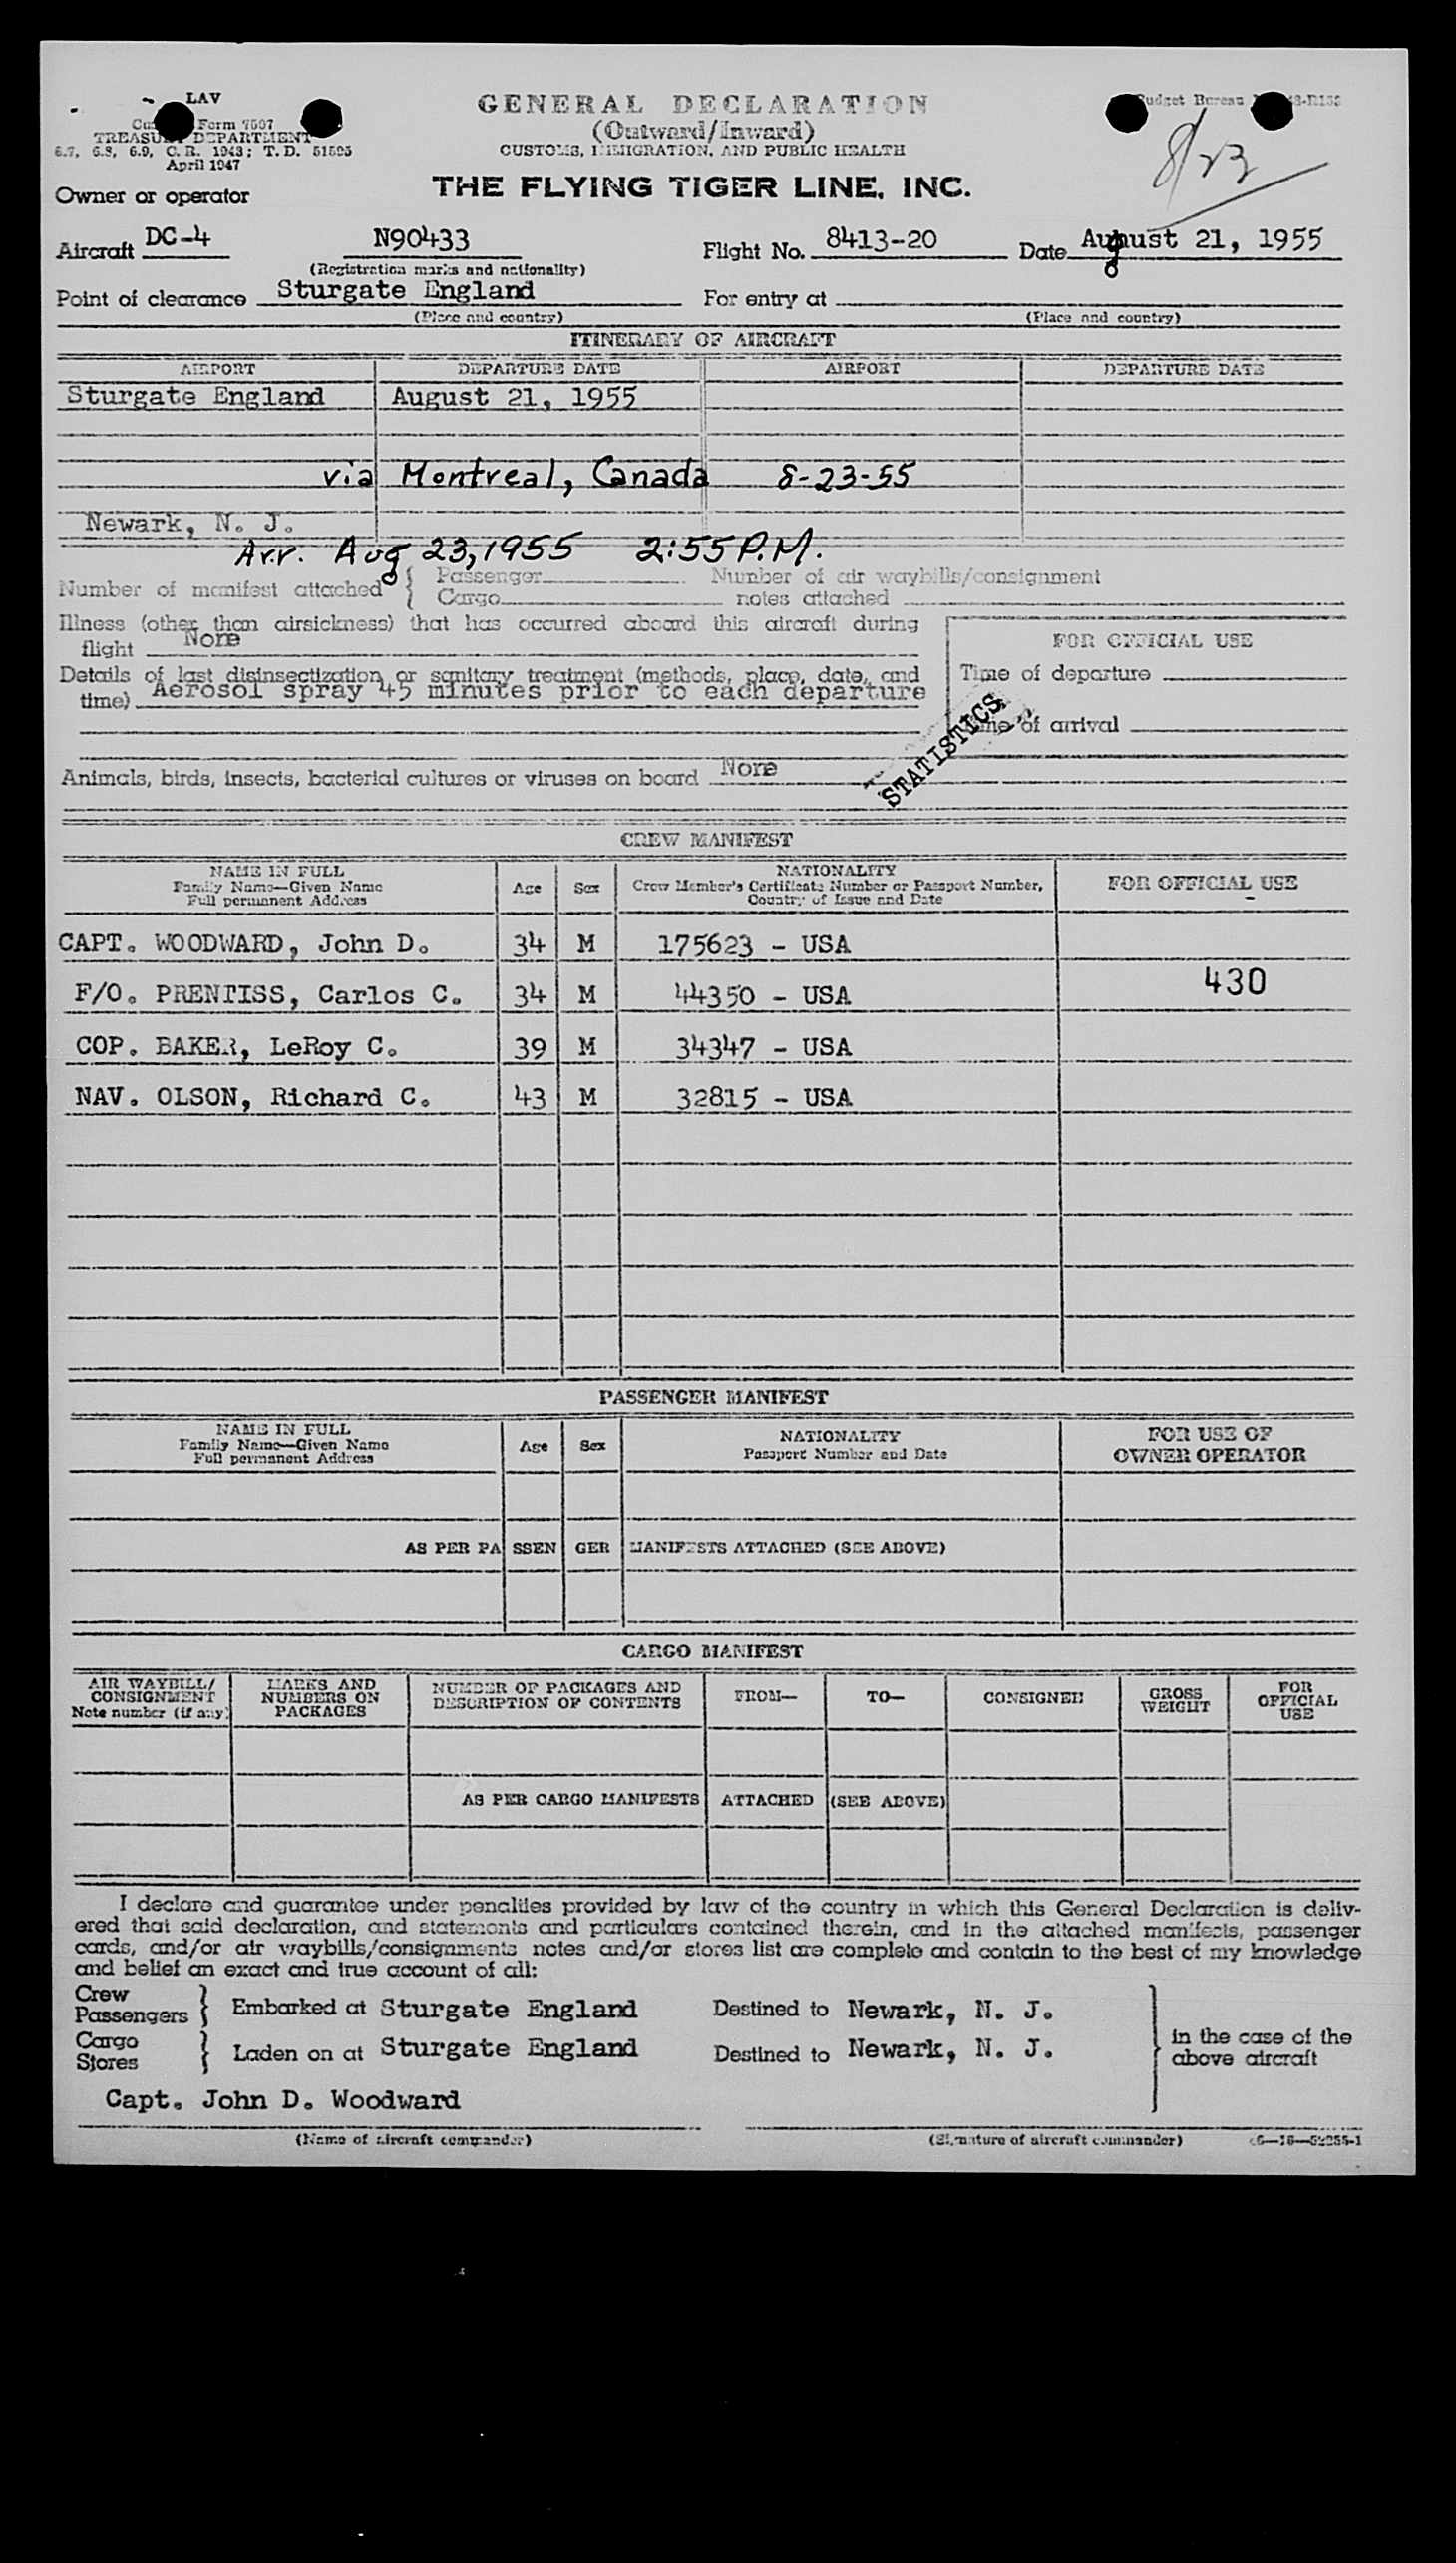 LAV
GENERAL DECLARATION
(Outward/Inward)
Form 7507
TREASURY DEPARTMENT
6.7, 6.8, 6.9, C. R. 1943; T. D. 51595
April 1947
CUSTOMS, IMMIGRATION, AND PUBLIC HEALTH
Budget Bureau
8/23
Owner or operator
THE FLYING TIGER LINE, INC.
Aircraft DC-4 N90433 Flight No. 8413-20 Date August 21, 1955
(Registration marks and nationality)
Point of clearance Sturgate England For entry at
(Place and country) (Place and country)
ITINERARY OF AIRCRAFT
AIRPORT DEPARTURE DATE AIRPORT DEPARTURE DATE
Sturgate England August 21, 1955
via Montreal, Canada 8-23-55
Newark, N. J.
Arr. Aug 23, 1955 2:55 P.M.
Number of manifest attached { Passenger Number of air waybills/consignment
Cargo notes attached
Illness (other than airsickness) that has occurred aboard this aircraft during
flight None
FOR OFFICIAL USE
Details of last disinsectization or sanitary treatment (methods, place, date, and
time) Aerosol spray 45 minutes prior to each departure
Time of departure
Time of arrival
STATISTICS
Animals, birds, insects, bacterial cultures or viruses on board None
CREW MANIFEST
NAME IN FULL
Family Name—Given Name
Full permanent Address
Age Sex
NATIONALITY
Crew Member's Certificate Number or Passport Number,
Country of Issue and Date
FOR OFFICIAL USE
CAPT. WOODWARD, John D. 34 M 175623 - USA
430
F/O. PRENTISS, Carlos C. 34 M 44350 - USA
COP. BAKER, LeRoy C. 39 M 34347 - USA
NAV. OLSON, Richard C. 43 M 32815 - USA
PASSENGER MANIFEST
NAME IN FULL
Family Name—Given Name
Full permanent Address
Age Sex
NATIONALITY
Passport Number and Date
FOR USE OF
OWNER OPERATOR
AS PER PASSENGER MANIFESTS ATTACHED (SEE ABOVE)
CARGO MANIFEST
AIR WAYBILL/
CONSIGNMENT
Note number (if any)
MARKS AND
NUMBERS ON
PACKAGES
NUMBER OF PACKAGES AND
DESCRIPTION OF CONTENTS
FROM—
TO—
CONSIGNEE
GROSS
WEIGHT
FOR
OFFICIAL
USE
AS PER CARGO MANIFESTS ATTACHED (SEE ABOVE)
I declare and guarantee under penalties provided by law of the country in which this General Declaration is deliv-
ered that said declaration, and statements and particulars contained therein, and in the attached manifests, passenger
cards, and/or air waybills/consignments notes and/or stores list are complete and contain to the best of my knowledge
and belief an exact and true account of all:
Crew
Passengers } Embarked at Sturgate England Destined to Newark, N. J.
Cargo
Stores } Laden on at Sturgate England Destined to Newark, N. J.
in the case of the
above aircraft
Capt. John D. Woodward
(Name of aircraft commander) (Signature of aircraft commander)